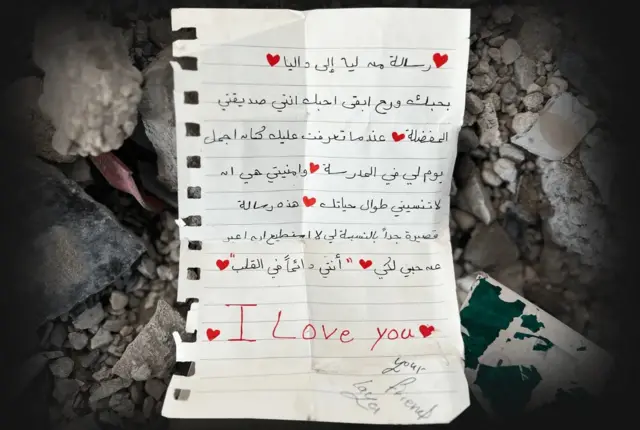 رسالة من ليا إلى داليا
بحبك ورح ابقى احبك انتي صديقتي
المفضلة عندما تعرفت عليك كان اجمل
يوم لي في المدرسة وامنيتي هي ان
لا تنسيني طوال حياتك هذه رسالة
قصيرة جداً بالنسبة لي لا استطيع ان اعبر
عن حبي لكي "أنتي دائماً في القلب"
I Love you
your
friend
Laya